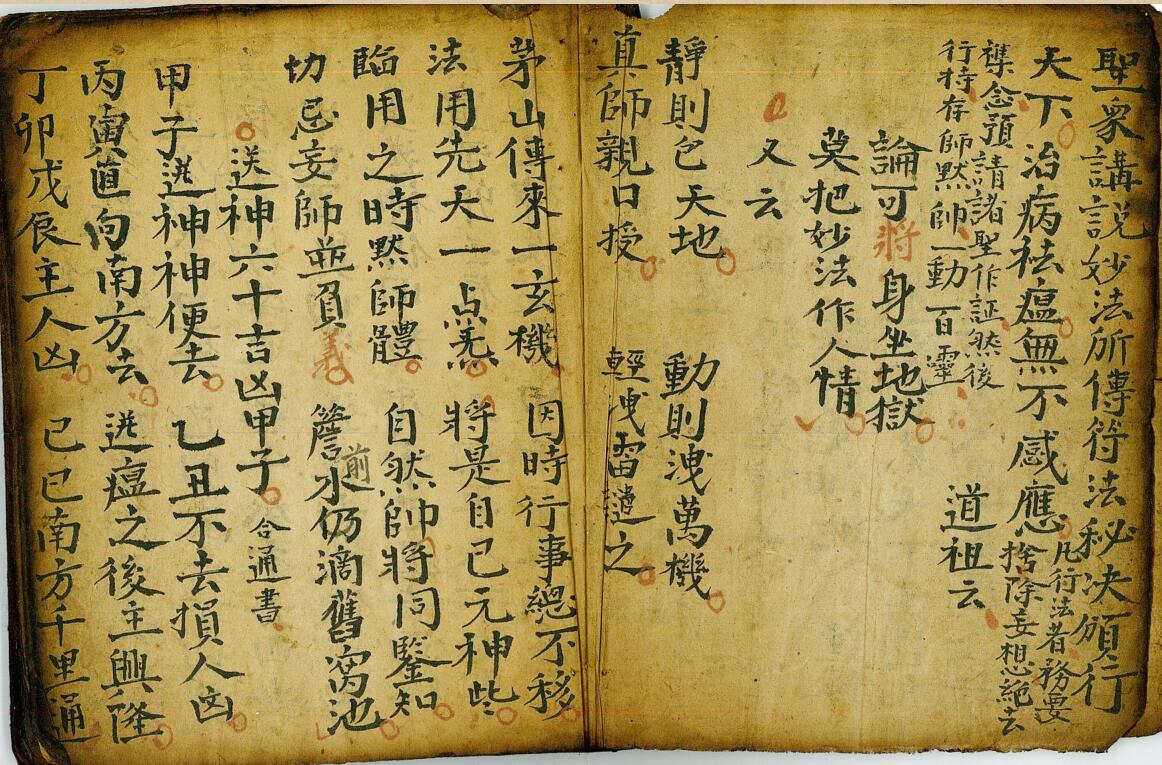 聖衆講説妙法所傳符法秘决頒行
天下治病祛瘟無不感應凡行法者務要
捨除妄想絶去
襍念預請諸聖作証然後
行持存師默帥一動百靈
道祖云
論可將身坐地獄
莫把妙法作人情
又云
靜則包天地 動則洩萬機
真師親口授 輕洩雷譴之
茅山傳來一玄機 因時行事總不移
法用先天一点炁 將是自己元神些
臨用之時默師體 自然帥將同鑒知
切忌妄師並負義 簷前水仍滴舊窩池
送神六十吉凶甲子 合通書
甲子送神神便去 乙丑不去損人凶
丙寅直向南方去 送瘟之後主興隆
丁卯戊辰主人凶 己巳南方千里通